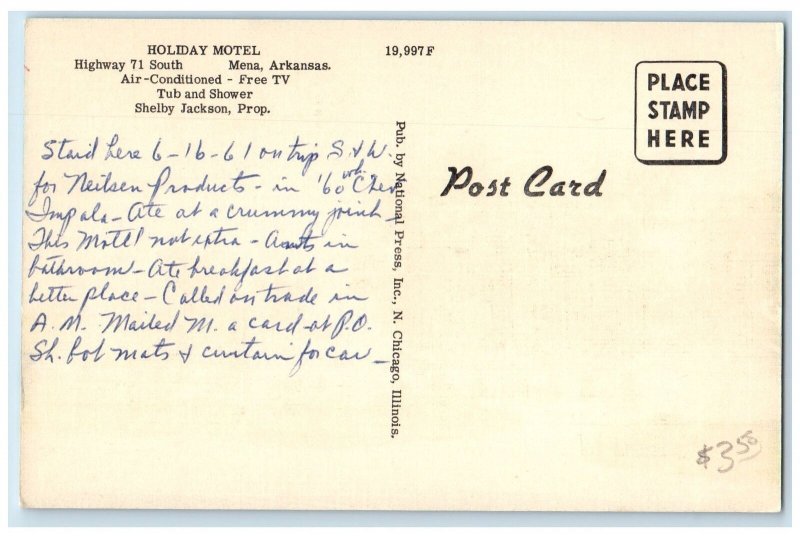 HOLIDAY MOTEL
Highway 71 South Mena, Arkansas.
Air-Conditioned - Free TV
Tub and Shower
Shelby Jackson, Prop.
19,997F
PLACE
STAMP
HERE
Post Card
Pub. by National Press, Inc., N. Chicago, Illinois.
Staid here 6-16-61 on trip S. & W.
for Neilsen Products - in '60 Chev
Impala - Ate at a crummy joint -
This Motel not extra - Ants in
bathroom - Ate breakfast at a
better place - Called on trade in
A.M. Mailed M. a card at P.O.
Sh. bot mats & curtain for car -
$3.50